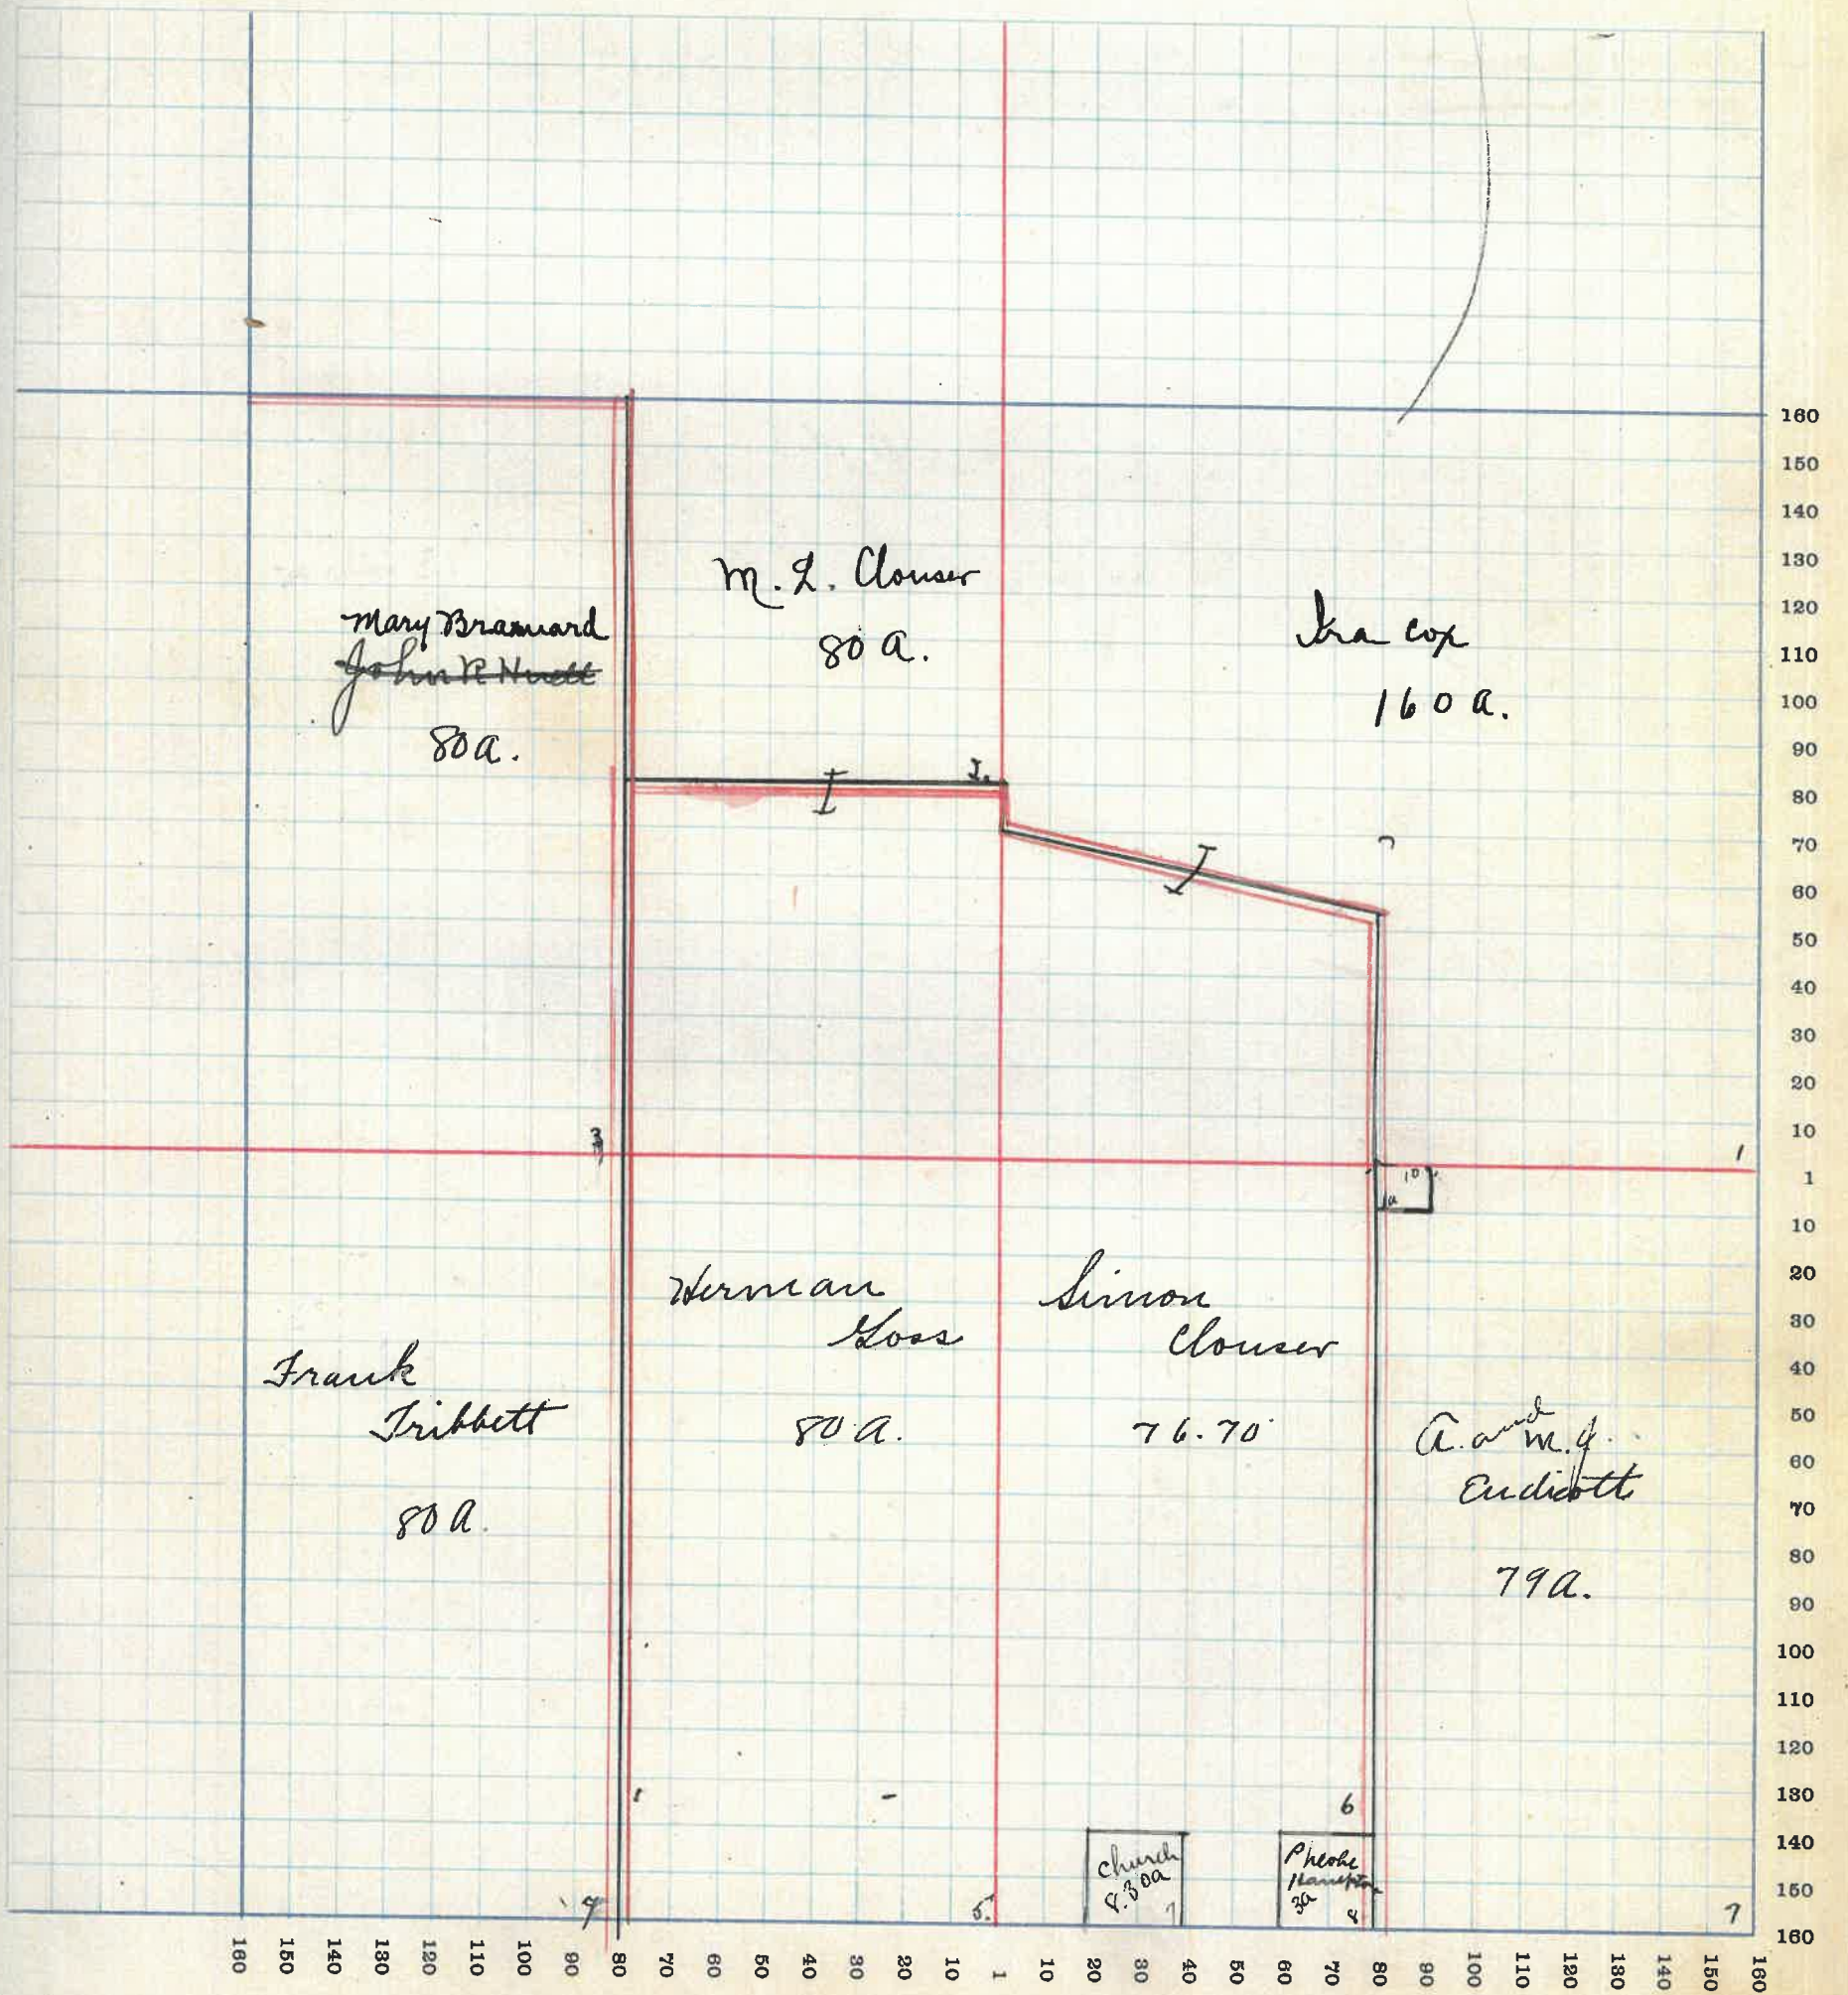 M. L. Clouser
80 a.
Mary Brannard
John R Huett
80 a.
Ira Cox
160 a.
I.
3
1
10
1a
Herman
Goss
80 a.
Simon
Clouser
76.70
Frank
Tribbett
80 a.
A. and M. J.
Endicott
79 a.
6
Church
8.30a
7
Pheobe
Hampton
3a
8
4
5.
7
160
150
140
130
120
110
100
90
80
70
60
50
40
30
20
10
1
10
20
30
40
50
60
70
80
90
100
110
120
130
140
150
160
160 150 140 130 120 110 100 90 80 70 60 50 40 30 20 10 1 10 20 30 40 50 60 70 80 90 100 110 120 130 140 150 160